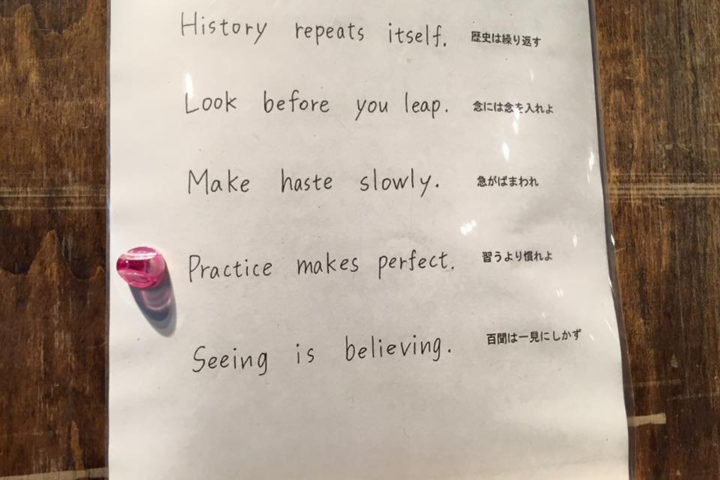 History repeats itself. 歴史は繰り返す
Look before you leap. 念には念を入れよ
Make haste slowly. 急がばまわれ
Practice makes perfect. 習うより慣れよ
Seeing is believing. 百聞は一見にしかず